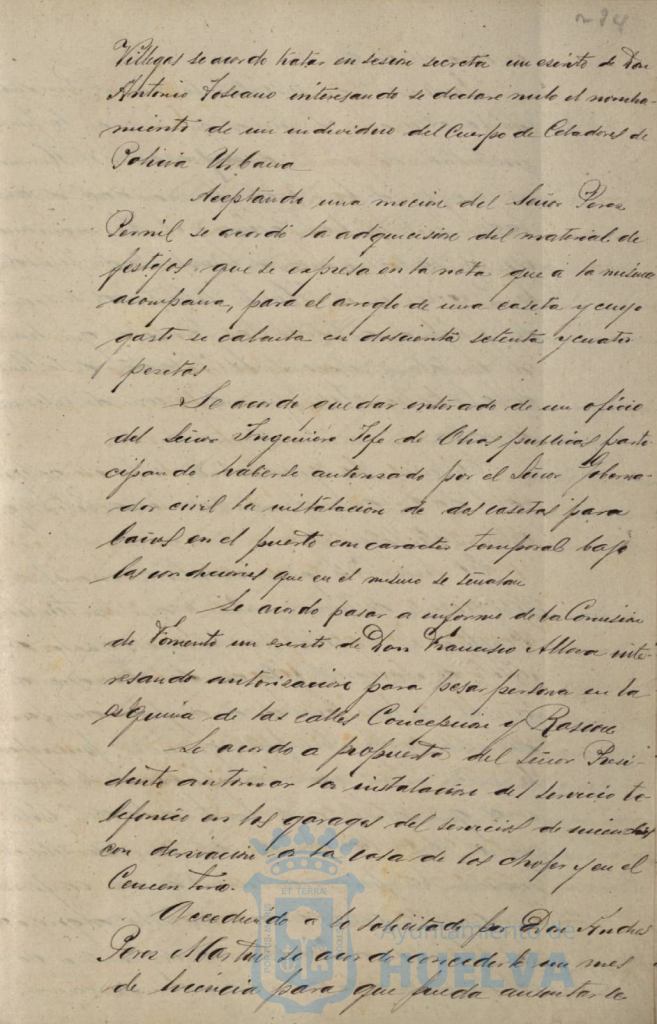 284
Villegas se acordo tratar en sesion secreta un escrito de Don
Antonio Toscano interesando se declare nulo el nombra-
miento de un individuo del Cuerpo de Celadores de
Policia Urbana
Aceptando una mocion del Señor Perez
Pernil se acordó la adquisicion del material de
festejos que se expresa en la nota que á la misma
acompaña, para el arreglo de una caseta y cuyo
gasto se calcula en doscienta setenta y cuatro
pesetas
Se acordo quedar enterado de un oficio
del Señor Ingeniero Jefe de Obras publicas parti-
cipando haberse autorizado por el Señor Goberna-
dor civil la instalacion de dos casetas para
baños en el puerto con caracter temporal bajo
las condiciones que en el mismo se señalan
Se acordo pasar a informe de la Comision
de Fomento un escrito de Don Francisco inte-
resando autorizacion para pesar persona en la
esquina de las calles Concepcion y Rascon
Se acordo a propuesta del Señor Presi-
dente autorizar la instalacion del servicio te-
lefonico en los garages del servicio de incendios
con derivacion a la casa de los chofer y en el
Cementerio.
Accediendo a lo solicitado por Don Andres
Perez Martin se acordo concederle un mes
de licencia para que pueda ausentarse
ET TERRAE
Ayuntamiento de
HUELVA